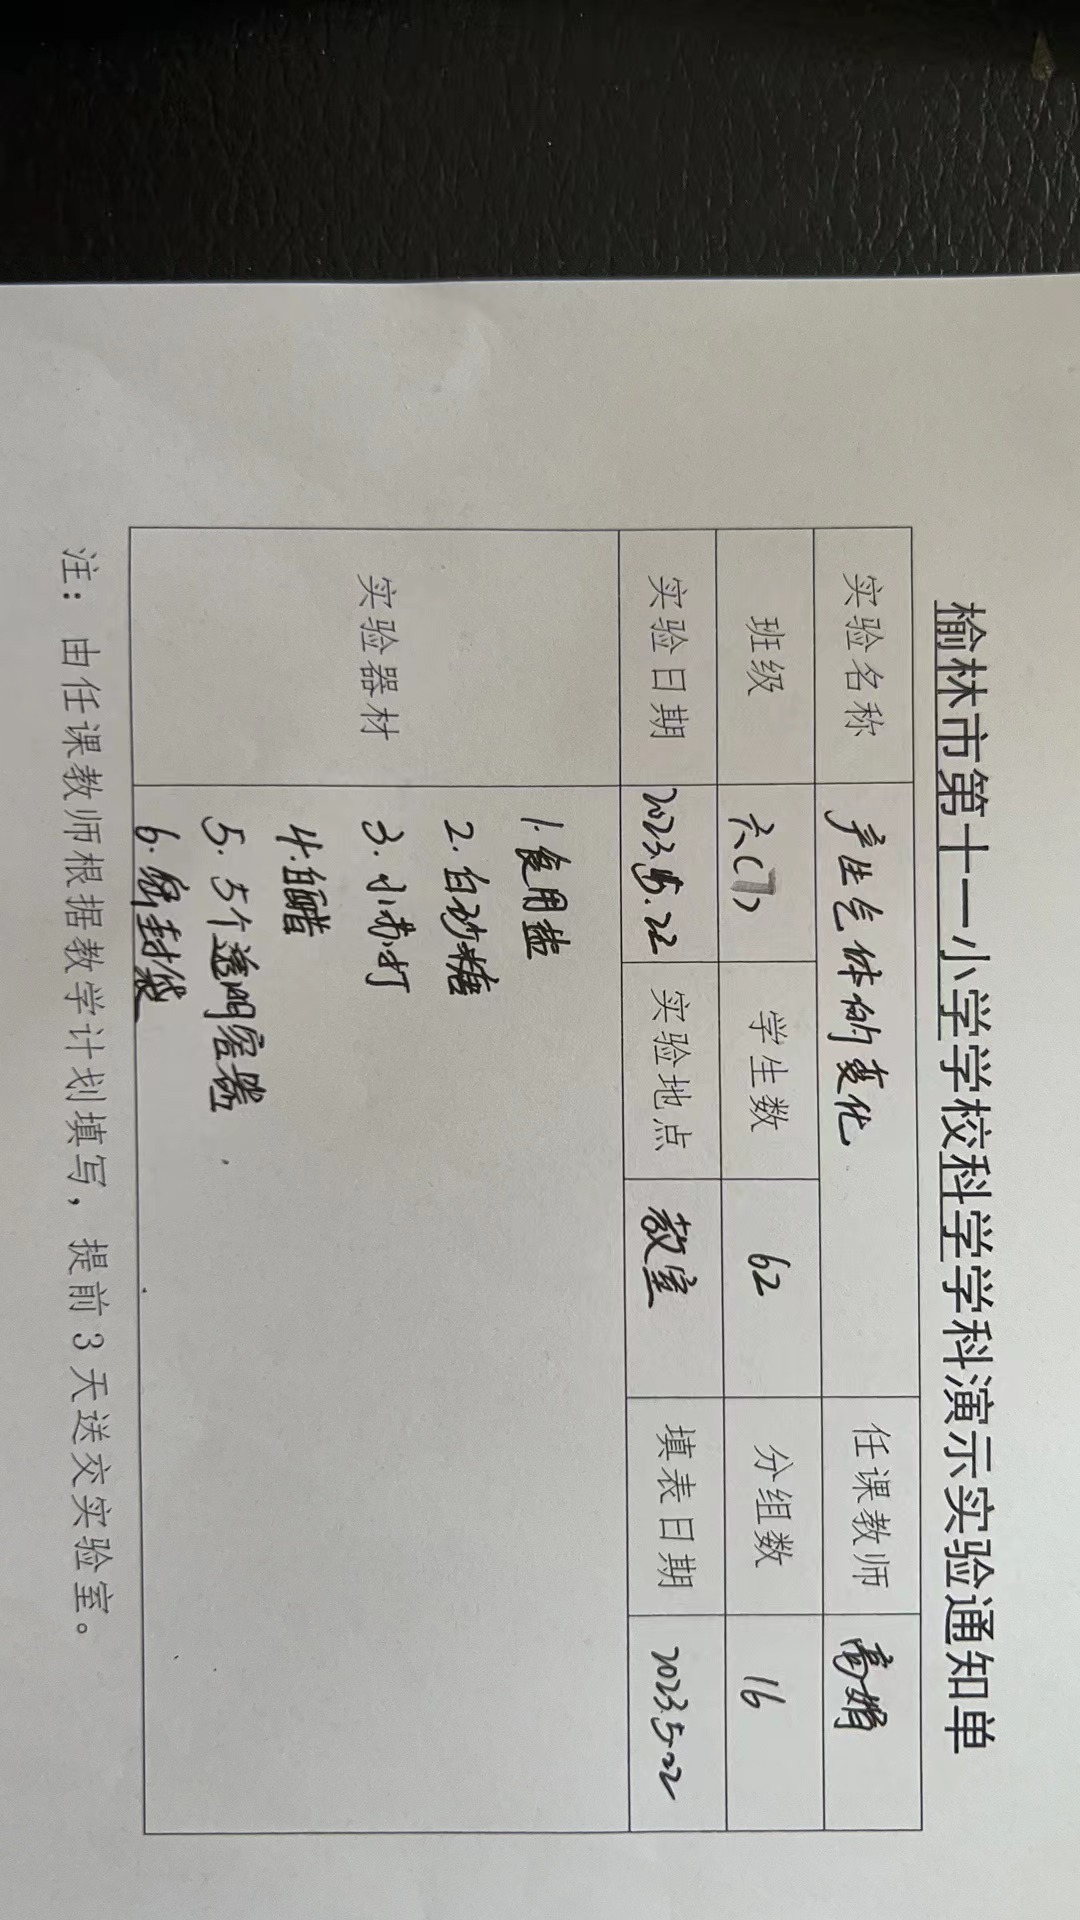 榆林市第十一小学学校科学学科演示实验通知单
实验名称 产生气体的变化 任课教师 高娟
班级 六(7) 学生数 62 分组数 16
实验日期 2023.5.22 实验地点 教室 填表日期 2023.5.22
实验器材
1.食用盐
2.白砂糖
3.小苏打
4.白醋
5.5个透明容器
6.密封袋
注：由任课教师根据教学计划填写，提前3天送交实验室。